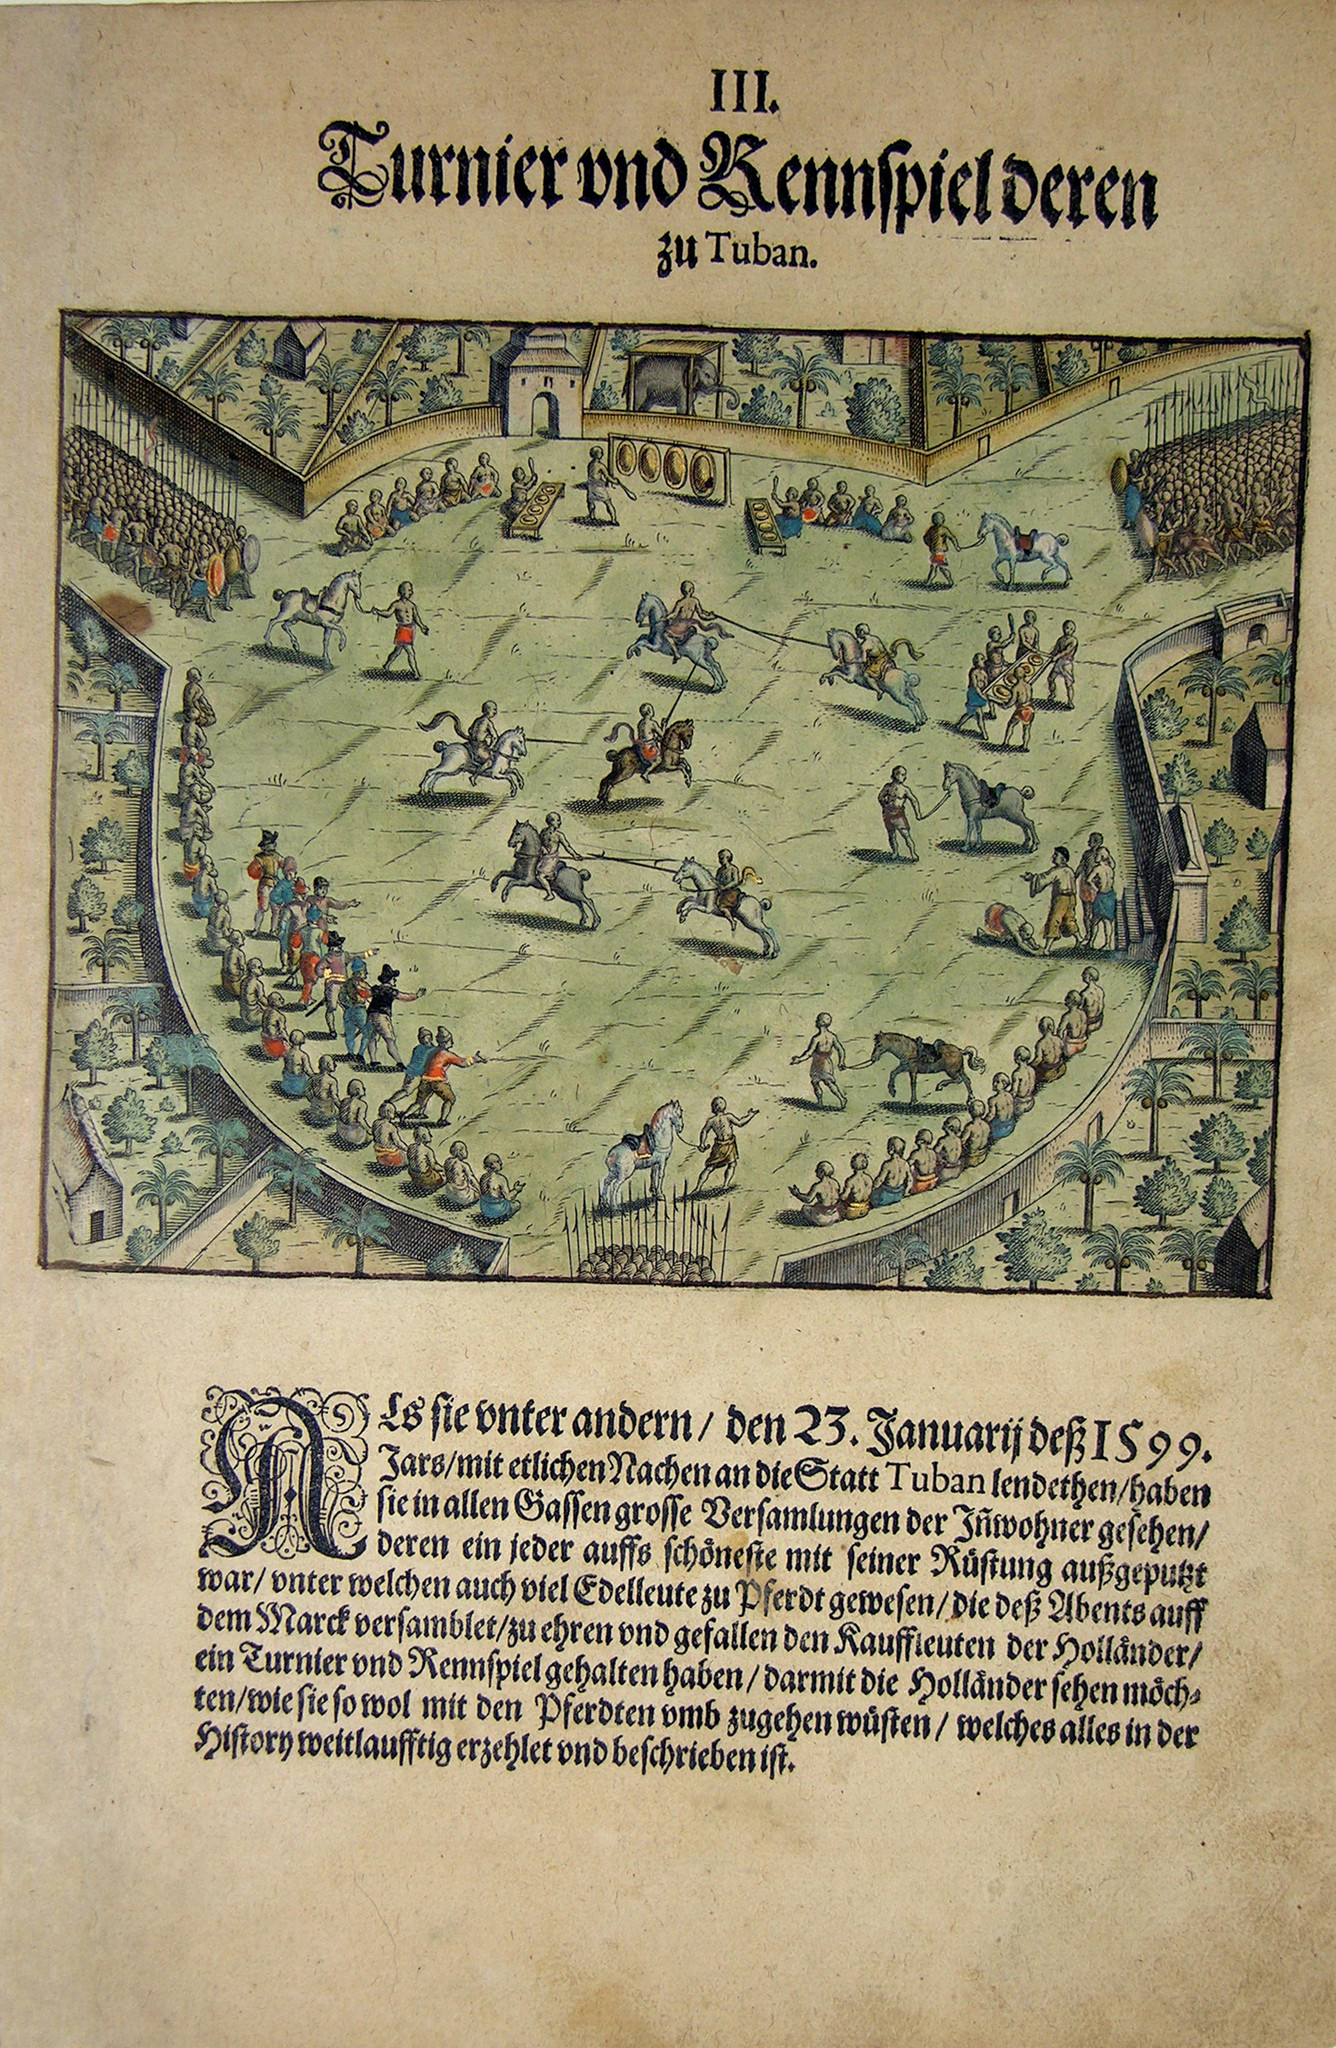 III.
Turnier vnd Rennspiel deren
zu Tuban.
ALs sie vnter andern / den 23. Januarij deß 1599.
Jars / mit etlichen Nachen an die Statt Tuban lendethen / haben
sie in allen Gassen grosse Versamlungen der Jñwohner gesehen /
deren ein jeder auffs schöneste mit seiner Rüstung außgeputzt
war / vnter welchen auch viel Edelleute zu Pferdt gewesen / die deß Abents auff
dem Marck versamblet / zu ehren vnd gefallen den Kauffleuten der Holländer /
ein Turnier vnd Rennspiel gehalten haben / darmit die Holländer sehen möch⸗
ten / wie sie so wol mit den Pferdten vmb zugehen wüsten / welches alles in der
History weitlaufftig erzehlet vnd beschrieben ist.